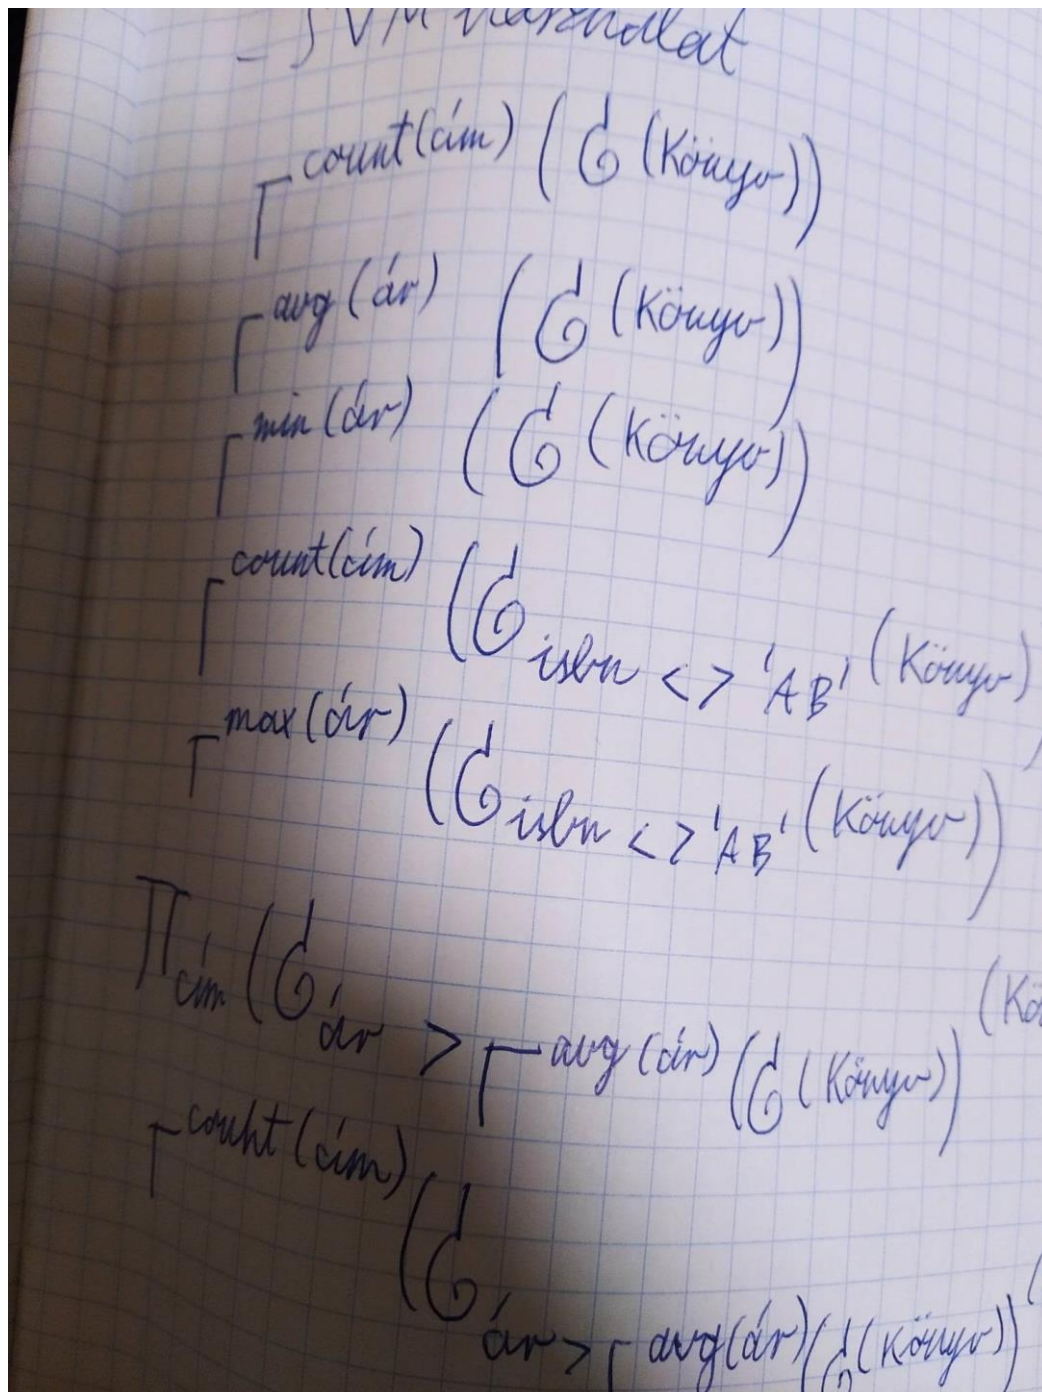 - JVM használat
Γ^count(cím) (σ (Könyv))
Γ^avg(ár) (σ (Könyv))
Γ^min(ár) (σ (Könyv))
Γ^count(cím) (σ isbn <> 'AB' (Könyv)
Γ^max(ár) (σ isbn <> 'AB' (Könyv))
Π cím (σ ár > Γ^avg(ár) (σ (Könyv)) (Kö
Γ^count(cím) (σ ár > Γ^avg(ár) (σ (Könyv)) (